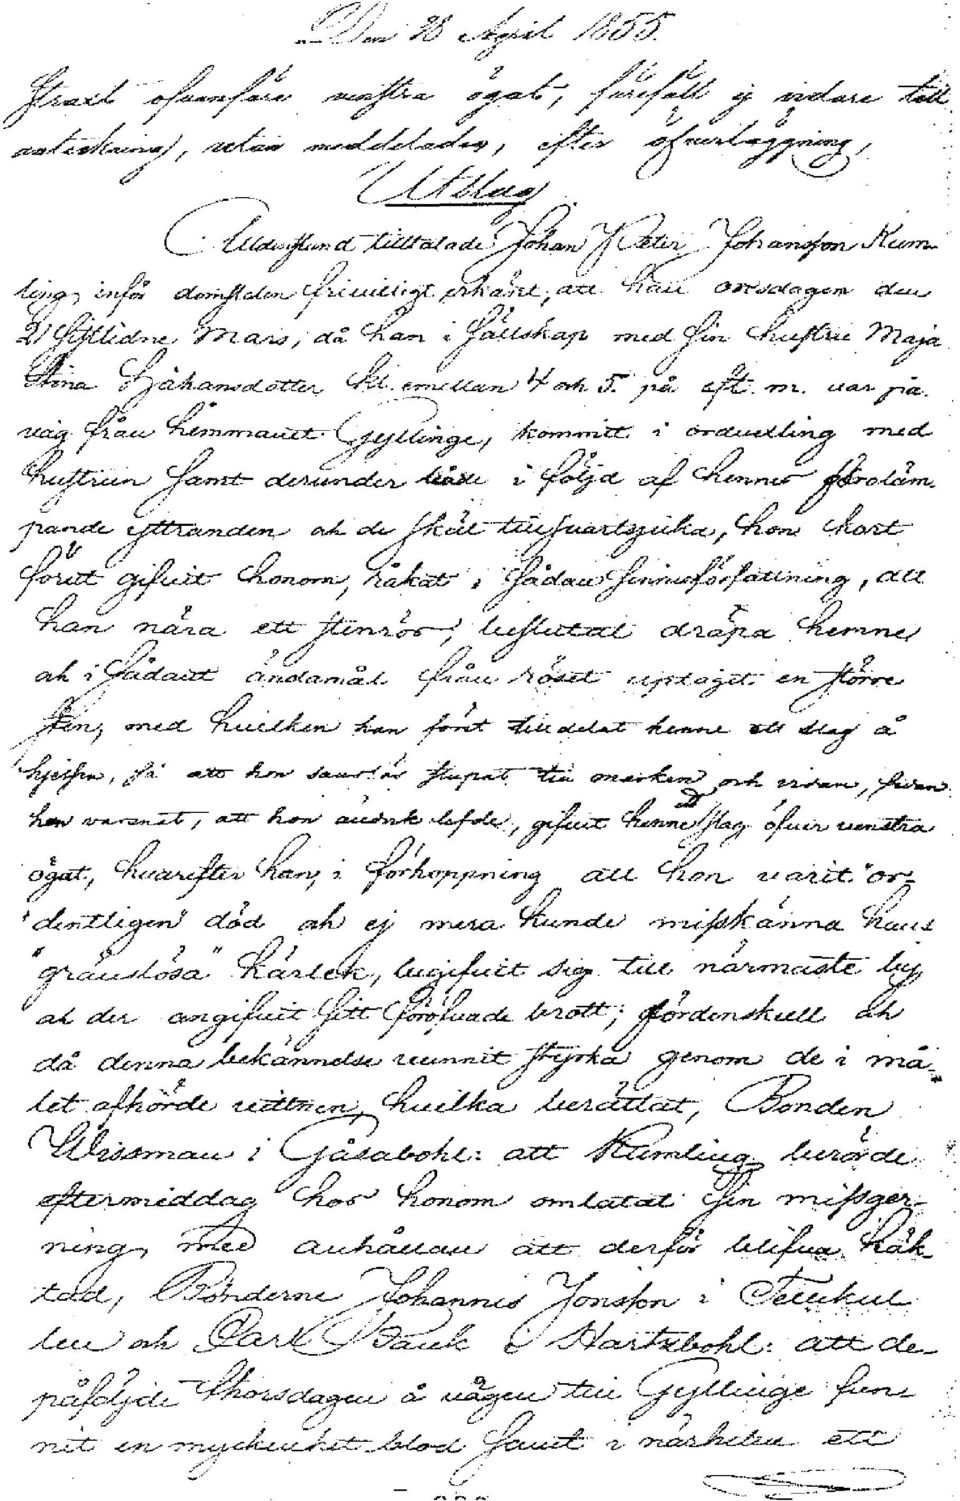 Den 28 April 1855.
straxt ofvanföre venstra ögat, föreföll ej vidare till
anteckning, utan meddelades, efter öfverläggning,
Utslag
Alldenstund tilltalade Johan Peter Johansson Kum-
ling, inför domstolen frivilligt erkänt, att han onsdagen den
21 sistlidne Mars, då han i sällskap med sin hustru Maja
Stina Håkansdotter kl. emellan 4 och 5. på eft. m. var på
väg från hemmanet Gyllinge, kommit i ordvexling med
hustrun samt derunder både i följd af hennes föroläm-
pande yttranden och de skäl till svartsjuka, hon kort
förut gifvit honom, råkat i sådan sinnesförfattning, att
han nära ett stenrös, beslutat dräpa henne
och i sådant ändamål från röset upptagit en större
sten, med hvilken han först tilldelat henne ett slag å
hjessan, så att hon stupat till marken och sedan,
han varsnat, att hon ännu lefde, gifvit henne ett slag öfver venstra
ögat, hvarefter han, i förhoppning att hon varit "or-
"dentligen" död och ej mera kunde misskänna hans
"gränslösa" kärlek, begifvit sig till närmaste by,
och der angifvit sitt föröfvade brott; fördenskull och
då denna bekännelse vunnit styrka genom de i må-
let afhörde vittnen, hvilka berättat, Bonden
Wissman i Gåsabohl: att Kumling berörde
eftermiddag hos honom omtalat sin missger-
ning, med anhållan att derför blifva häk-
tad, Bönderne Johannes Jonsson i Tenkul-
len och Carl Bauk i Hartsbohl: att de
påföljde thorsdagen å vägen till Gyllinge fun-
nit en myckenhet blod samt i närheten ett